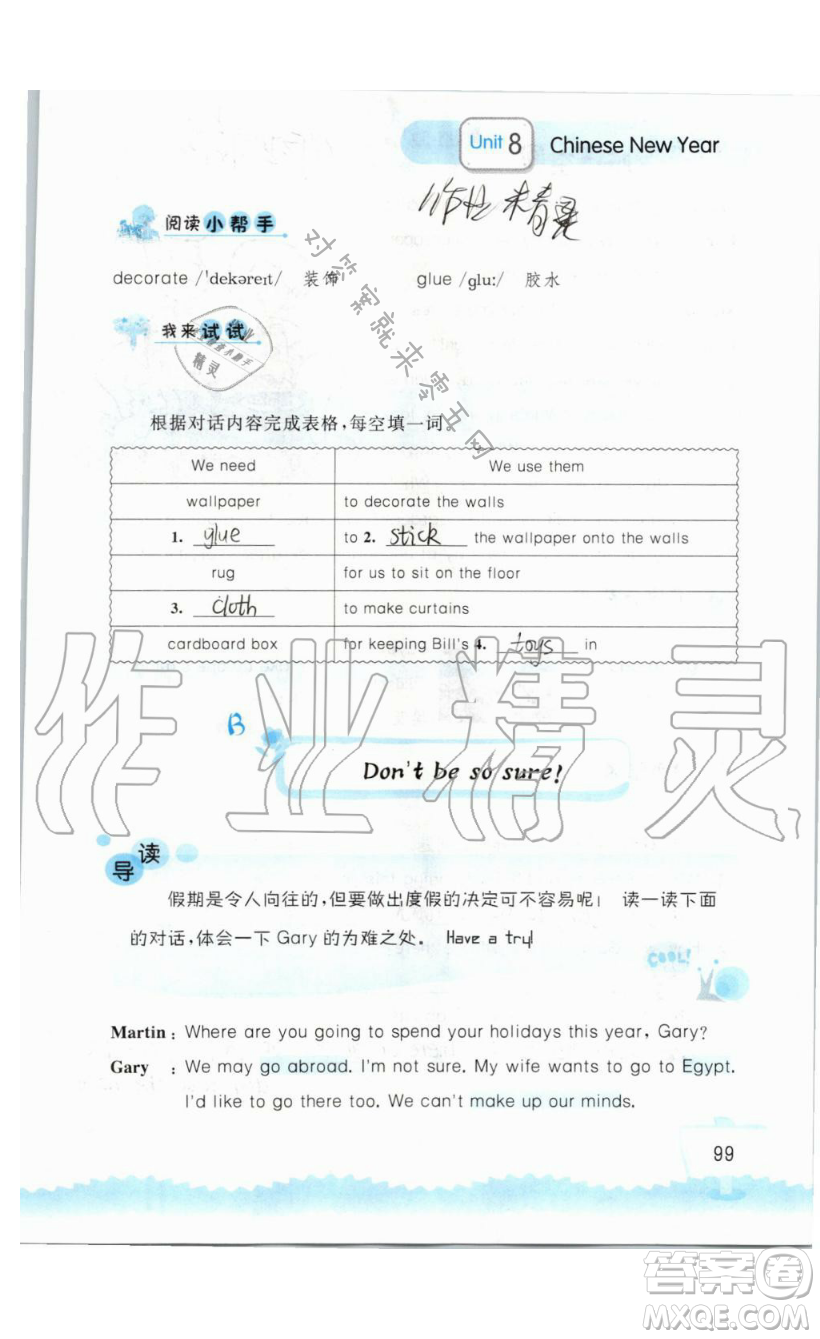 Unit 8 Chinese New Year
作业精灵
阅读小帮手
decorate /ˈdekəreɪt/ 装饰 glue /ɡluː/ 胶水
对答案就来零五网
我来试试
精灵
根据对话内容完成表格，每空填一词。
We need We use them
wallpaper to decorate the walls
1. glue to 2. stick the wallpaper onto the walls
rug for us to sit on the floor
3. cloth to make curtains
cardboard box for keeping Bill's 4. toys in
作业精灵
B
Don't be so sure!
导读
假期是令人向往的，但要做出度假的决定可不容易呢！ 读一读下面
的对话，体会一下 Gary 的为难之处。 Have a try!
COOL!
Martin: Where are you going to spend your holidays this year, Gary?
Gary : We may go abroad. I'm not sure. My wife wants to go to Egypt.
I'd like to go there too. We can't make up our minds.
99
答案圈
MXQE.COM